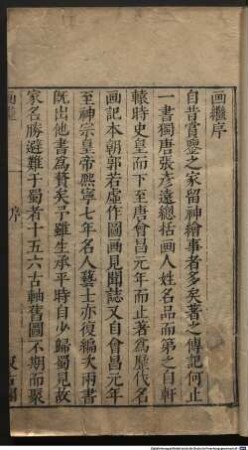 画繼序
自昔賞鑒之家留神繪事者多矣著之傳記何止
一書獨唐張彥遠總括画人姓名品而第之自軒
轅時史皇而下至唐會昌元年而止著為歷代名
画記本朝郭若虛作圖画見聞誌又自會昌元年
至神宗皇帝熙寧七年名人藝士亦復編次兩書
既出他書為贅矣予雖生承平時自少歸蜀見故
家名勝避難于蜀者十五六古軸舊圖不期而聚
序